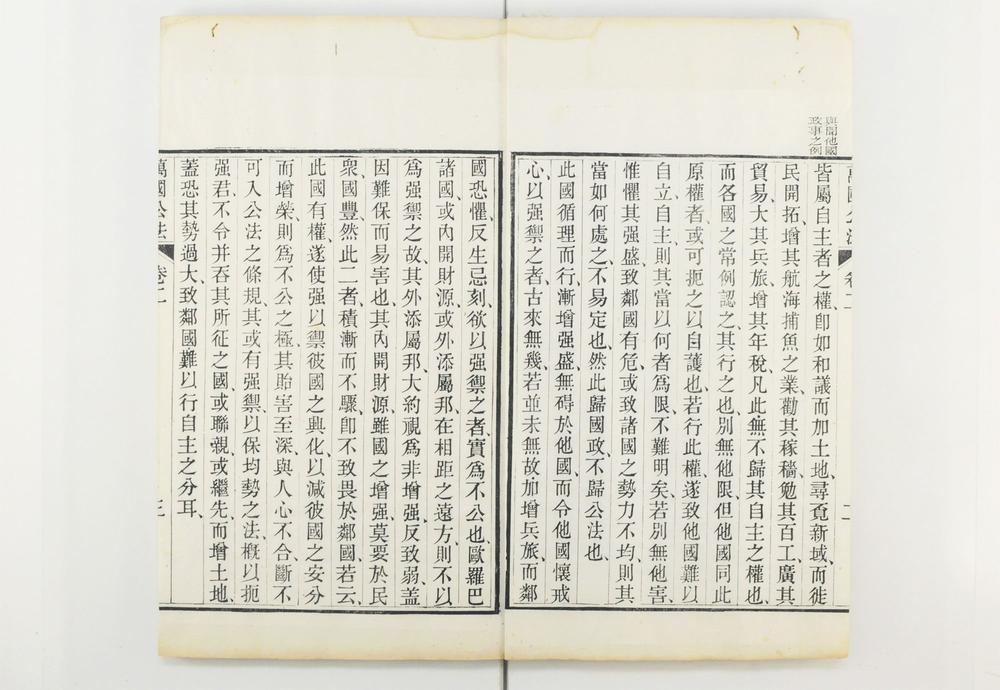 與聞他國
政事之例
萬國公法 卷二 二
皆屬自主者之權、卽如和議而加土地、尋覔新域、而徙
民開拓、增其航海捕魚之業、勸其稼穡、勉其百工、廣其
貿易、大其兵旅、增其年稅、凡此無不歸其自主之權也、
而各國之常例認之、其行之也、別無他限、但他國同此
原權者、或可扼之以自護也、若行此權、遂致他國難以
自立自主、則其當以何者爲限、不難明矣、若別無他害、
惟懼其强盛、致鄰國有危、或致諸國之勢力不均、則其
當如何處之、不易定也、然此歸國政、不歸公法也、
此國循理而行、漸增强盛、無碍於他國、而令他國懷戒
心、以强禦之者、古來無幾、若並未無故加增兵旅、而鄰
國恐懼、反生忌刻、欲以强禦之者、實爲不公也、歐羅巴
諸國、或內開財源、或外添屬邦、在相距之遠方、則不以
爲强禦之故、其外添屬邦、大約視爲非增强、反致弱、盖
因難保而易害也、其內開財源、雖國之增强、莫要於民
衆國豐、然此二者、積漸而不驟、卽不致畏於鄰國、若云、
此國有權、遂使强以禦彼國之興化、以減彼國之安分
而增榮、則爲不公之極、其貽害至深、與人心不合、斷不
可入公法之條規、其或有强禦、以保均勢之法、槪以扼
强君、不令并吞其所征之國、或聯親、或繼先、而增土地、
蓋恐其勢過大、致鄰國難以行自主之分耳、
萬國公法 卷二 三